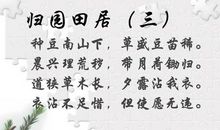 归园田居（三）
种豆南山下，草盛豆苗稀。
晨兴理荒秽，带月荷锄归。
道狭草木长，夕露沾我衣。
衣沾不足惜，但使愿无违。